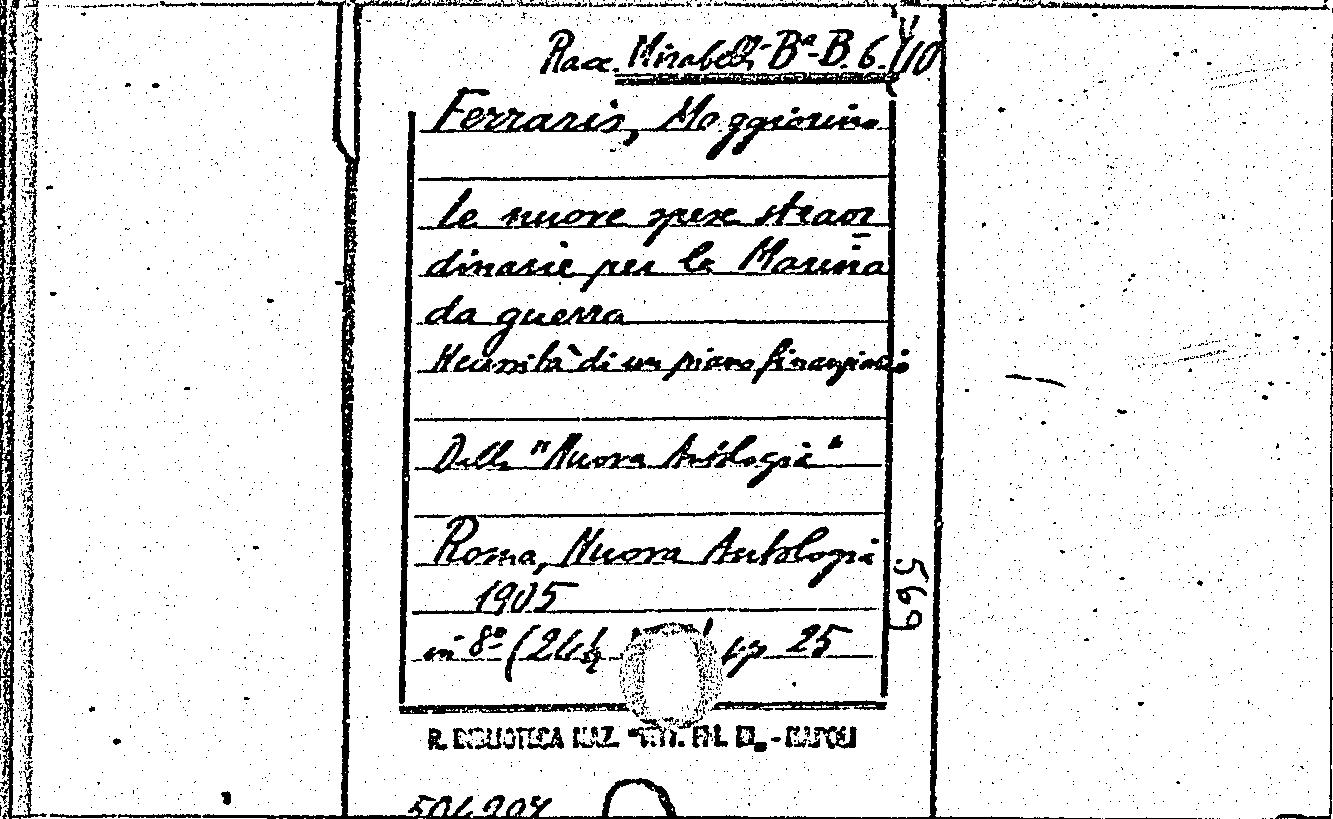 Racc. Mirabelli Bª-B. 6.
Ferraris, Maggiorino
Le nuove spese straor
dinarie per la Marina
da guerra
Necessità di un piano finanziario
Dalla "Nuova Antologia"
Roma, Nuova Antologia
1905
in 8º (24½ pp 25
569
R. BIBLIOTECA NAZ. "VITT. EM. III„ - NAPOLI